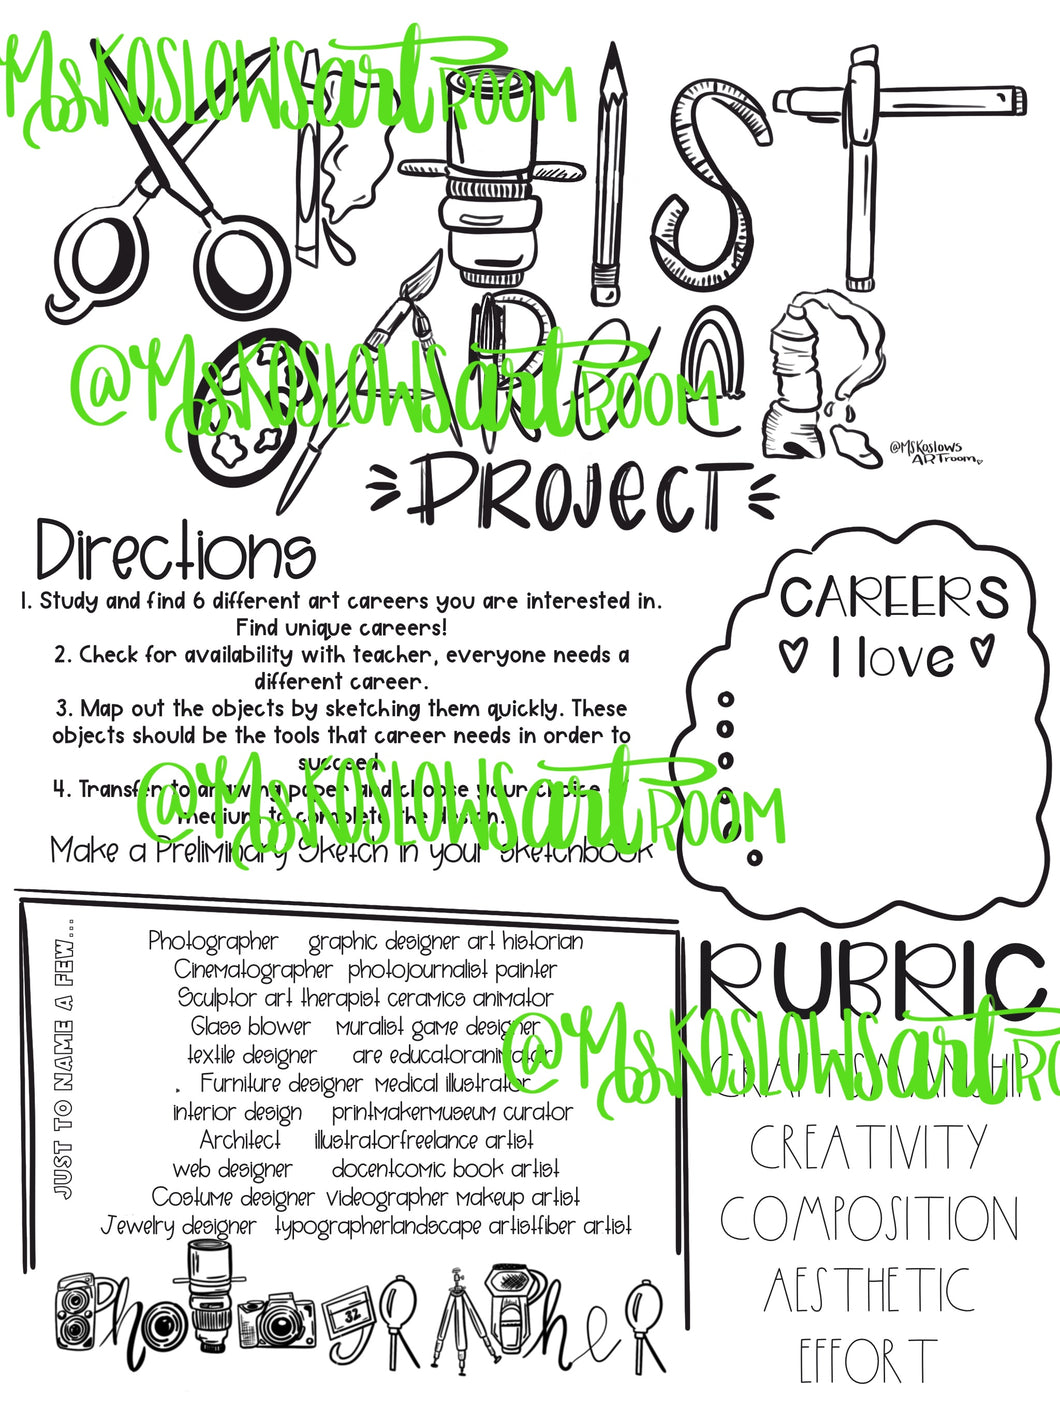 @MsKoslowsartROOM
ARTIST
@MsKoslowsartROOM
CAREER
@MSKoslows
ARTroom
PROJECT
Directions
1. Study and find 6 different art careers you are interested in.
Find unique careers!
2. Check for availability with teacher, everyone needs a
different career.
3. Map out the objects by sketching them quickly. These
objects should be the tools that career needs in order to
succeed
4. Transfer to drawing paper and choose your choice of
medium to complete the design.
@MsKoslowsartROOM
Make a Preliminary Sketch in your sketchbook
CAREERS
I love
JUST TO NAME A FEW...
Photographer graphic designer art historian
Cinematographer photojournalist painter
Sculptor art therapist ceramics animator
Glass blower muralist game designer
textile designer are educatoranimator
. Furniture designer medical illustrator
interior design printmakermuseum curator
Architect illustratorfreelance artist
web designer docentcomic book artist
Costume designer videographer makeup artist
Jewelry designer typographerlandscape artistfiber artist
PhotogRAPheR
32
RUBRIC
@MsKoslowsartRO
CRAFTSMANSHIP
CREATIVITY
COMPOSITION
AESTHETIC
EFFORT